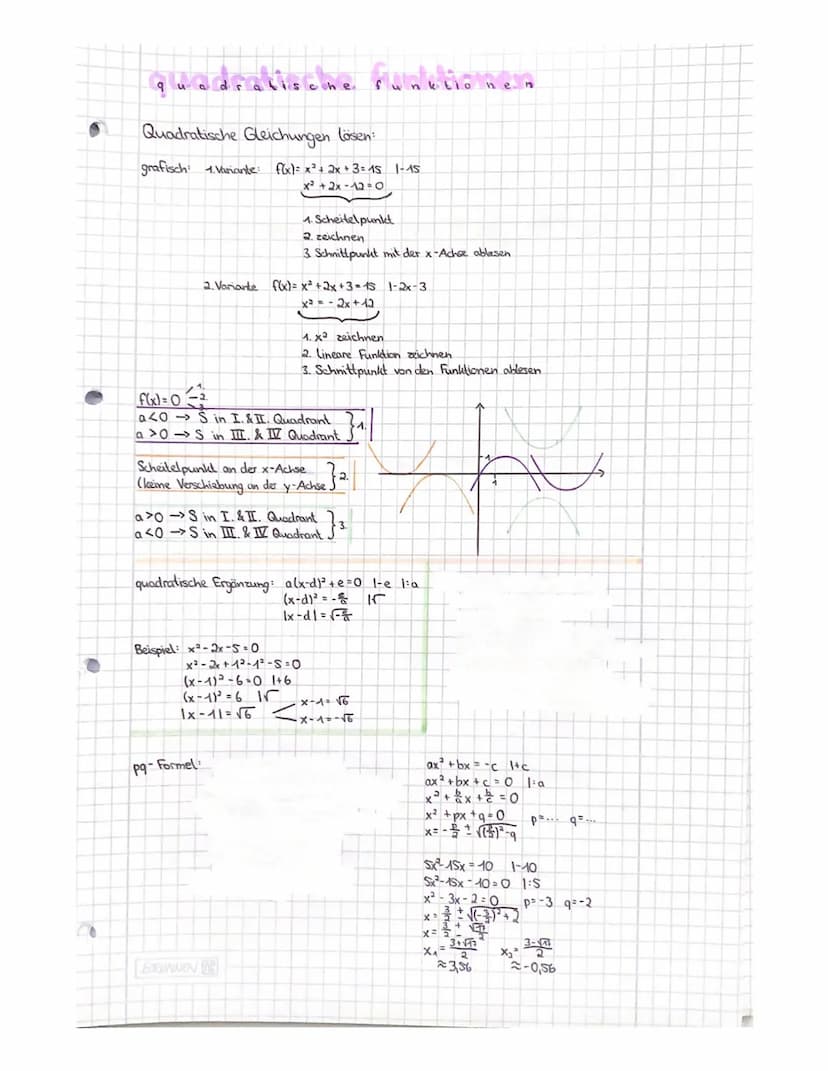 quadratische funktionen
Quadratische Gleichungen lösen:
grafisch: 1. Variante: f(x)= x² + 2x + 3 = 15 |-15
x² + 2x - 12 = 0
1. Scheitelpunkt
2. zeichnen
3. Schnittpunkt mit der x-Achse ablesen
2. Variante f(x)= x² + 2x + 3 = 15 |-2x-3
x² = - 2x + 12
1. x² zeichnen
2. Lineare Funktion zeichnen
3. Schnittpunkt von den Funktionen ablesen
f(x) = 0 1. 2. 3.
a<0 → S in I. & II. Quadrant
a>0 → S in III. & IV Quadrant } 1.
Scheitelpunkt an der x-Achse
(keine Verschiebung an der y-Achse } 2.
a>0 → S in I. & II. Quadrant
a<0 → S in III. & IV Quadrant } 3.
1
1
quadratische Ergänzung: a(x-d)² + e = 0 |-e |:a
(x-d)² = -e/a |√
|x-d| = √-e/a
Beispiel: x² - 2x - 5 = 0
x² - 2x + 1² - 1² - 5 = 0
(x-1)² - 6 = 0 |+6
(x-1)² = 6 |√
|x-1| = √6
x-1 = √6
x-1 = -√6
pq-Formel:
ax² + bx = -c |+c
ax² + bx + c = 0 |:a
x² + b/a x + b/c = 0
x² + px + q = 0 p=... q=...
x = -p/2 ± √(p/2)² - q
5x² - 15x = 10 |-10
5x² - 15x - 10 = 0 |:5
x² - 3x - 2 = 0 p = -3 q = -2
x = 3/2 ± √(-3/2)² + 2
x = 3/2 ± √17/2
x₁ = 3+√17/2 x₂ = 3-√17/2
≈ 3,56 ≈ -0,56